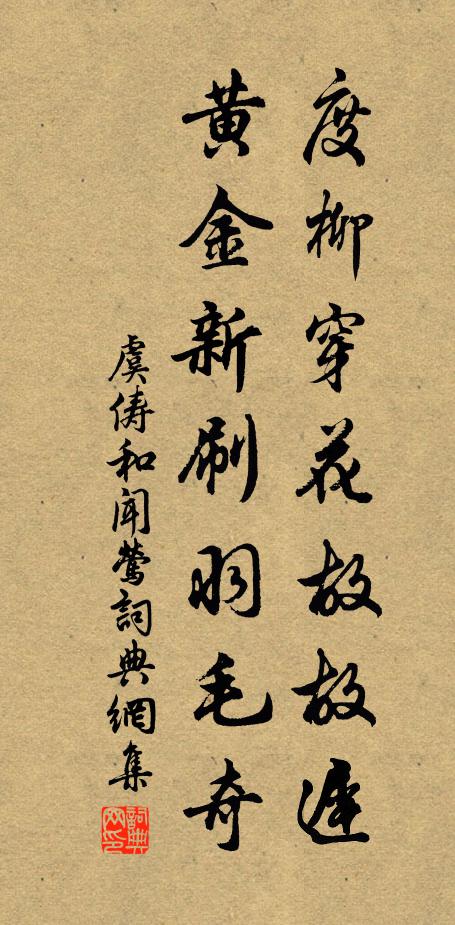 度柳穿花故故遲
黃金新刷羽毛奇
虞儔和聞鶯詞典網集
詞典網印